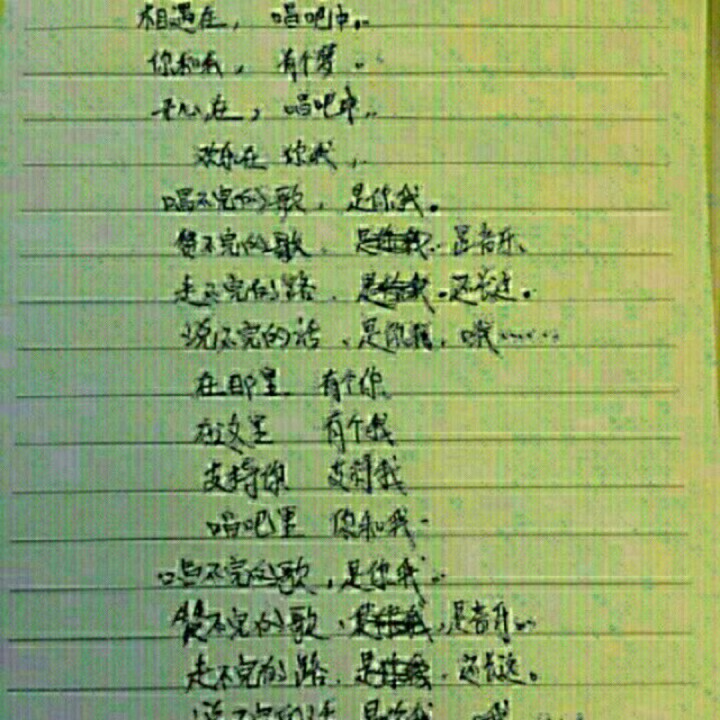 相遇在，唱吧中。
你和我，有个梦。
开心在，唱吧中..
欢乐在 你我，.
唱不完的歌，是你我。
赞不完的歌，是你我..是音乐、
走不完的路，是你我。还长远。
说不完的话、是你我，哦……
在那里 有个你
在这里 有个我
支持你 支持我
唱吧里 你和我.
唱不完的歌，是你我..
赞不完的歌，是你我，是音乐..
走不完的路.是你我.还长远。
说不完的话 是你我 哦